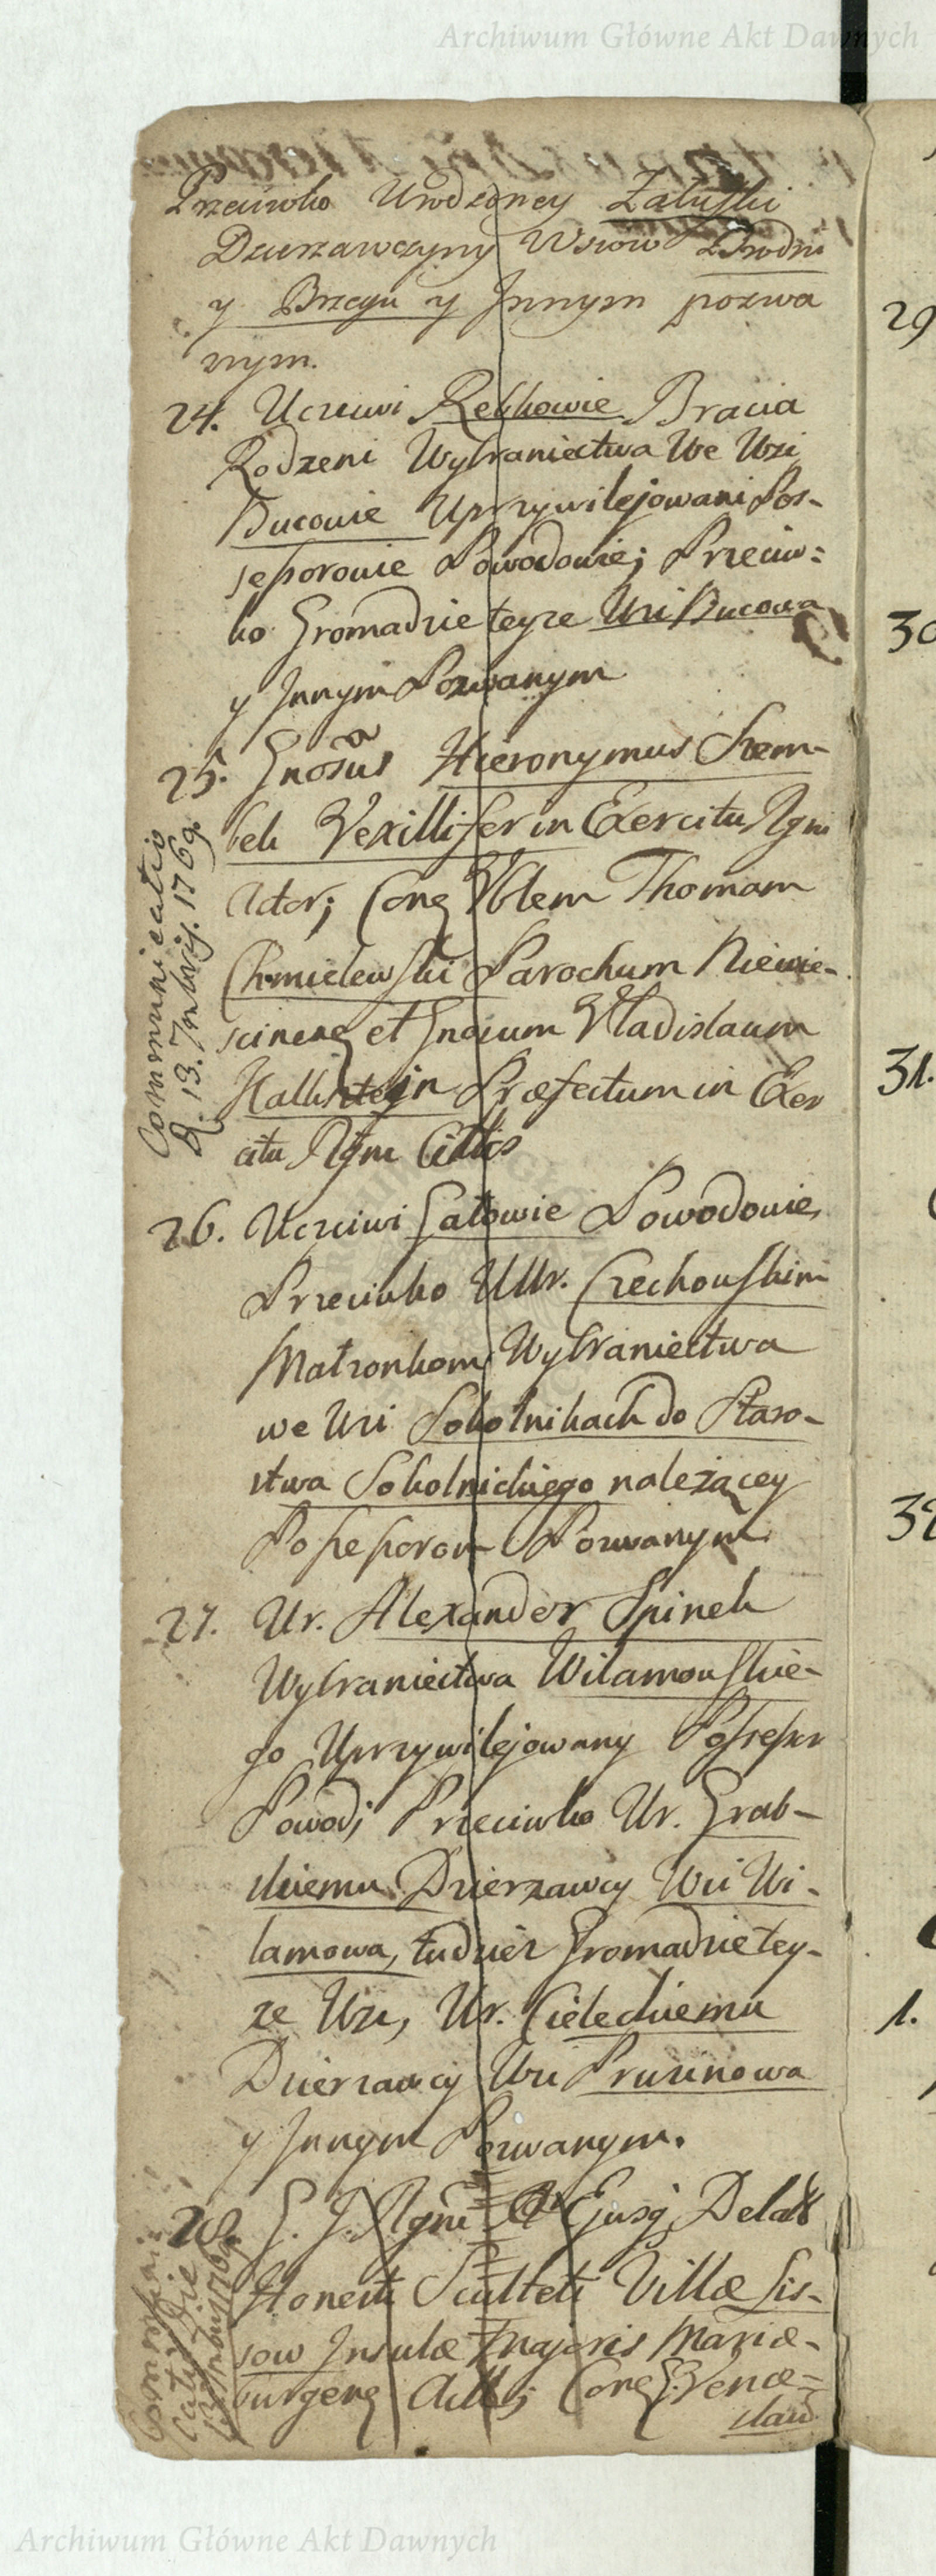 Archiwum Główne Akt Dawnych
Przeciwko Urodzoney Załuski
Dzierzawczyny Wsiow Brodni
y Brzegu y Jnnym pozwa
nym.
24. Uczciwi Rebkowie Bracia
Rodzeni Wybraniectwa We Wsi
Bucowie Uprzywilejowani Pos-
sessorowie Powodowie; Przeciw:
ko Gromadzie teyze Wsi Bucowa
y Jnnym Pozwanym
25. Gnosus Hieronymus Szem-
bek Vexillifer in Exercitu Rgni
Actor; Cong Vblem Thomam
Chmielewski Parochum Niewie-
scineng et Gnosum Vladislaum
Hallsztejn Præfectum in Exer
citu Rgni Cittos
Communicatio
R. 13. 7mbris. 1769.
26. Uczciwi Gałowie Powodowie,
Przeciwko UUr. Czechowskim
Małzonkom Wybraniectwa
we Wsi Sokolnikach do Staro-
stwa Sokolnickiego należącey
Possessorom Pozwanym
27. Ur. Alexander Spinek
Wybraniectwa Wilamowskie-
go Uprzywilejowany Possessor
Powod; Przeciwko Ur. Grab-
skiemu Dzierzawcy Wsi Wi-
lamowa, tudziez Gromadzie tey-
ze Wsi, Ur. Cieleckiemu
Dzierzawcy Wsi Prusinowa
y Jnnym Pozwanym.
28. G. J. Rgni Ejusq Delat
Honesti Sculteti Villæ Lis-
sow Insulæ Majoris Mariæ-
burgeng Actt; Cong G. Vence-
slau
29
30
31.
32
1.
Archiwum Główne Akt Dawnych